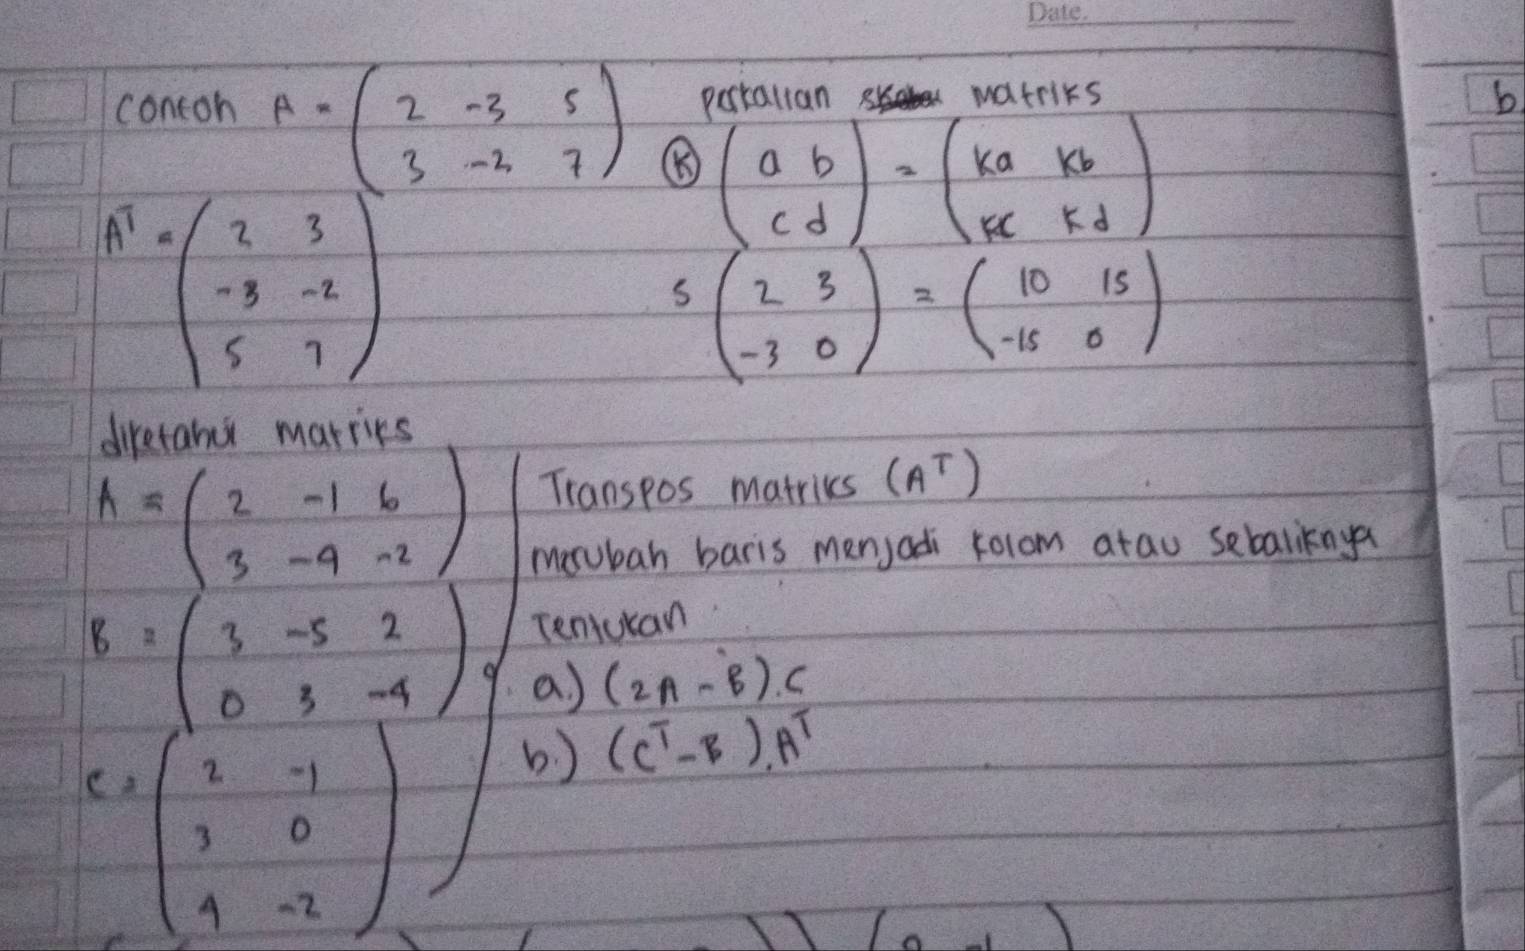 Date.
contoh A = ( 2 -3 5
3 -2 7 )
A^T = ( 2 3
-3 -2
5 7 )
perkalian matriks
(K) ( a b
c d ) = ( Ka Kb
Kc Kd )
5 ( 2 3
-3 0 ) = ( 10 15
-15 0 )
diketahui matriks
A = ( 2 -1 6
3 -4 -2 )
B = ( 3 -5 2
0 3 -4 )
C = ( 2 -1
3 0
4 -2 )
Transpos matriks (A^T)
merubah baris menjadi kolom atau sebaliknya
Tentukan
a.) (2A - B).C
b.) (C^T - B).A^T
b